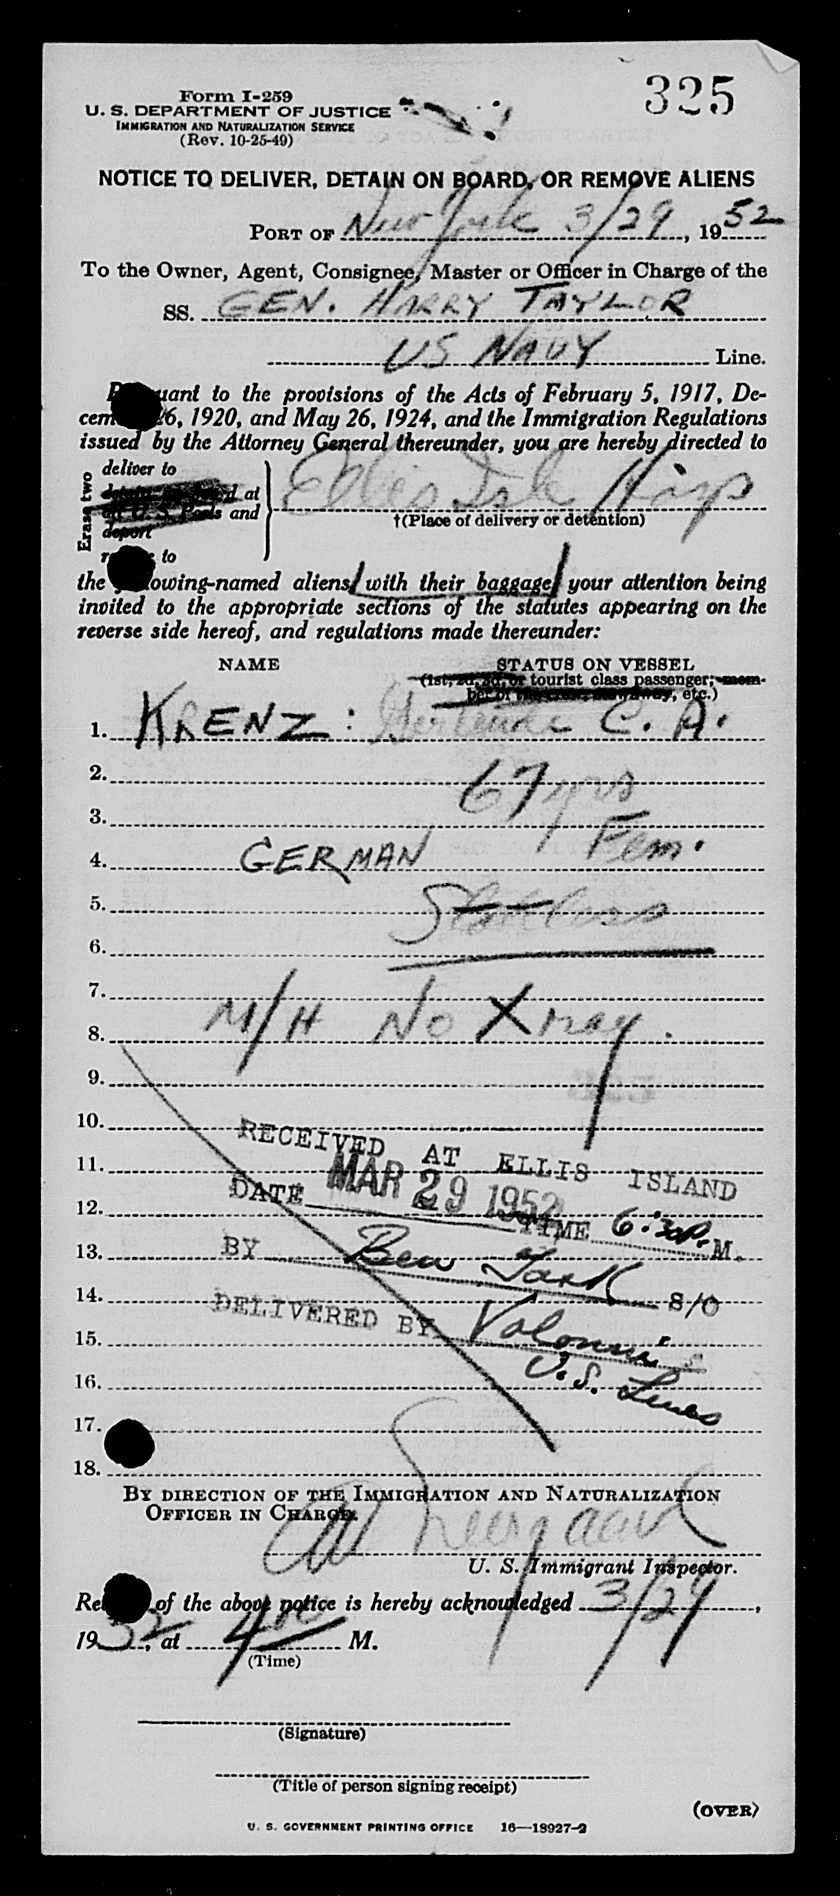 Form I-259
325
U. S. DEPARTMENT OF JUSTICE
IMMIGRATION AND NATURALIZATION SERVICE
(Rev. 10-25-49)
NOTICE TO DELIVER, DETAIN ON BOARD, OR REMOVE ALIENS
PORT OF New York 3/29, 1952
To the Owner, Agent, Consignee, Master or Officer in Charge of the
SS. GEN. HARRY TAYLOR
US NAVY Line.
Pursuant to the provisions of the Acts of February 5, 1917, De-
cember 26, 1920, and May 26, 1924, and the Immigration Regulations
issued by the Attorney General thereunder, you are hereby directed to
Erase two
deliver to
at
all U. S. Ports and
deport
to
Ellis Isle Hosp
†(Place of delivery or detention)
the following-named aliens with their baggage your attention being
invited to the appropriate sections of the statutes appearing on the
reverse side hereof, and regulations made thereunder:
NAME STATUS ON VESSEL
(1st, 2d, 3d, or tourist class passenger; mem-
ber of etc.)
1. KRENZ: Gertrude C. A.
2. 67 yrs
3. Fem.
4. GERMAN
5. Stateless
6.
7.
8. M/H No Xray.
9.
10.
RECEIVED AT ELLIS ISLAND
11.
DATE MAR 29 1952 TIME 6:30 P.M.
12.
13.
BY Ben S/O
14.
DELIVERED BY
15.
U.S. Lines
16.
17.
18.
BY DIRECTION OF THE IMMIGRATION AND NATURALIZATION
OFFICER IN CHARGE.
U. S. Immigrant Inspector.
of the above notice is hereby acknowledged 3/29,
1952, at 400 M.
(Time)
(Signature)
(Title of person signing receipt)
(OVER)
U. S. GOVERNMENT PRINTING OFFICE 16—18927-2